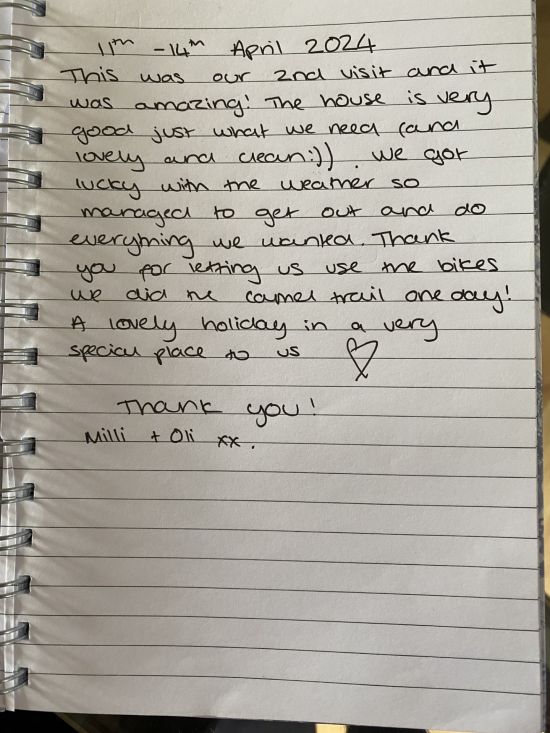 11th - 14th April 2024
This was our 2nd visit and it
was amazing! The house is very
good just what we need (and
lovely and clean:)). We got
lucky with the weather so
managed to get out and do
everything we wanted. Thank
you for letting us use the bikes
we did the camel trail one day!
A lovely holiday in a very
special place to us ♡
Thank you!
Milli + Oli xx.